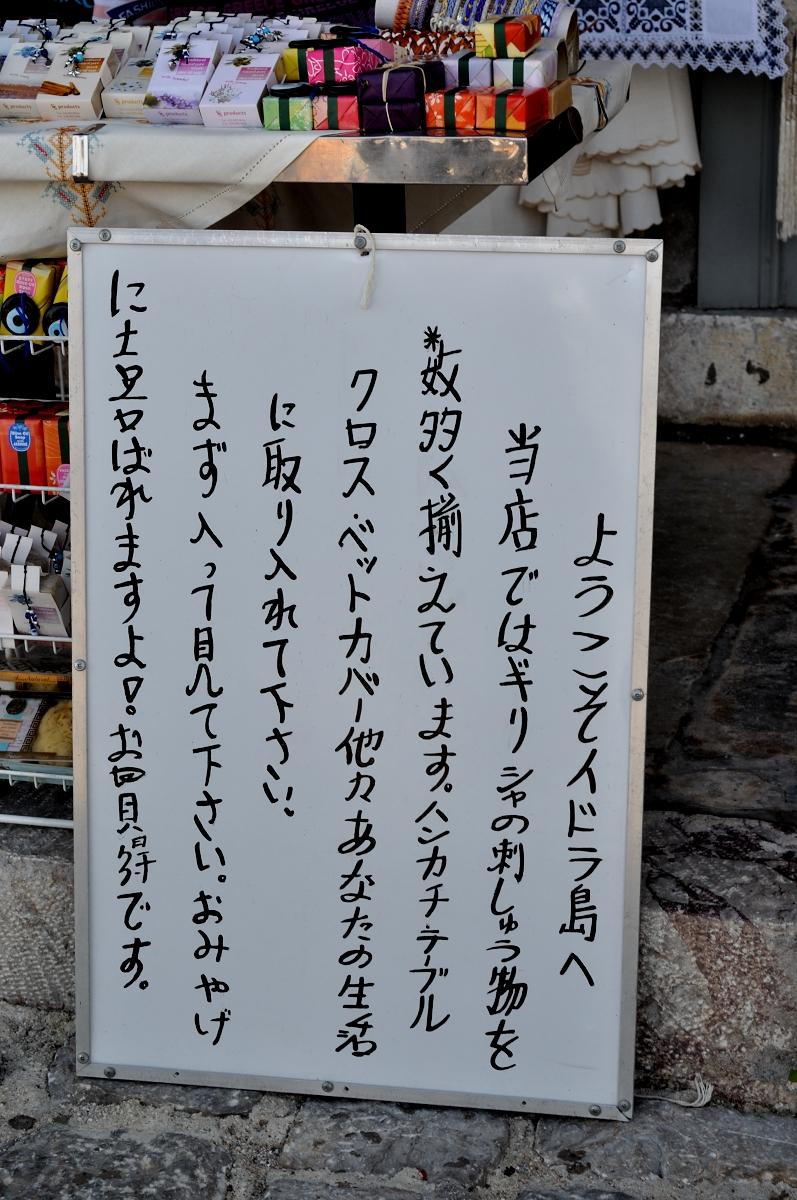 ようこそイドラ島へ
当店ではギリシャの刺しゅう物を
*数多く揃えています。ハンカチ・テーブル
クロス・ベットカバー他々あなたの生活
に取り入れて下さい。
まず入って見て下さい。おみやげ
に喜ばれますよ!。お買得です。
products
products